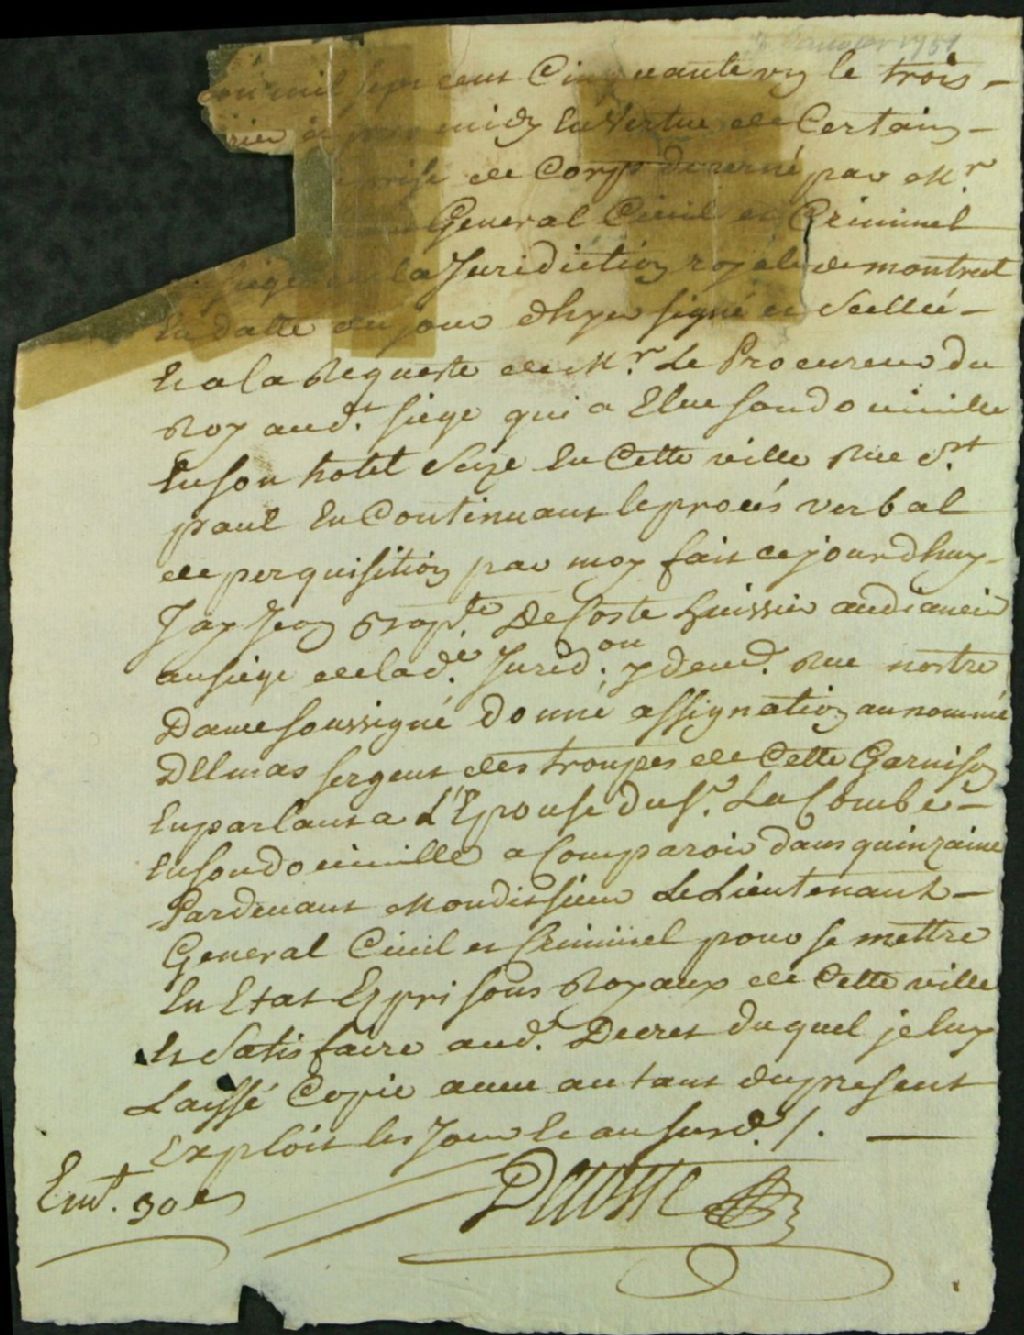 mil sept cent Cinquante un le trois -
midy En Vertue de Certain -
prise de Corps decerné par Mr
General Civil et Criminel
Siege de la Juridiction royale de montreal
En datte du jour d'hyer signé et Scellé -
Et a la Requeste de Mr. Le Procureur du
Roy aud.t siege qui a Elue son domicille
En son hotel Size En Cette ville Rue St
paul En Continuant le procés verbal
de perquisition par moy fait ce jourdhuy -
Jay Jean Bapte. DeCoste huissier audiancier
au siege de lad.e Jurid.on y demt. Rue nostre
Dame soussigné donné assignation au nommé
Dellmas sergent des troupes de Cette Garnison
En parlant a L'Epouse du Sr. La Combe -
En son domicille a Comparoir dans quinzaine
Pardevant Mondit sieur Le Lieutenant -
General Civil et Criminel pour se mettre
En Etat Es prisons Royaux de Cette ville
Et Satisfaire aud. Decret duquel je luy
Laissé Copie avec autant du present
Exploit les Jour et an susd. /.
Emt. 30s
Decoste